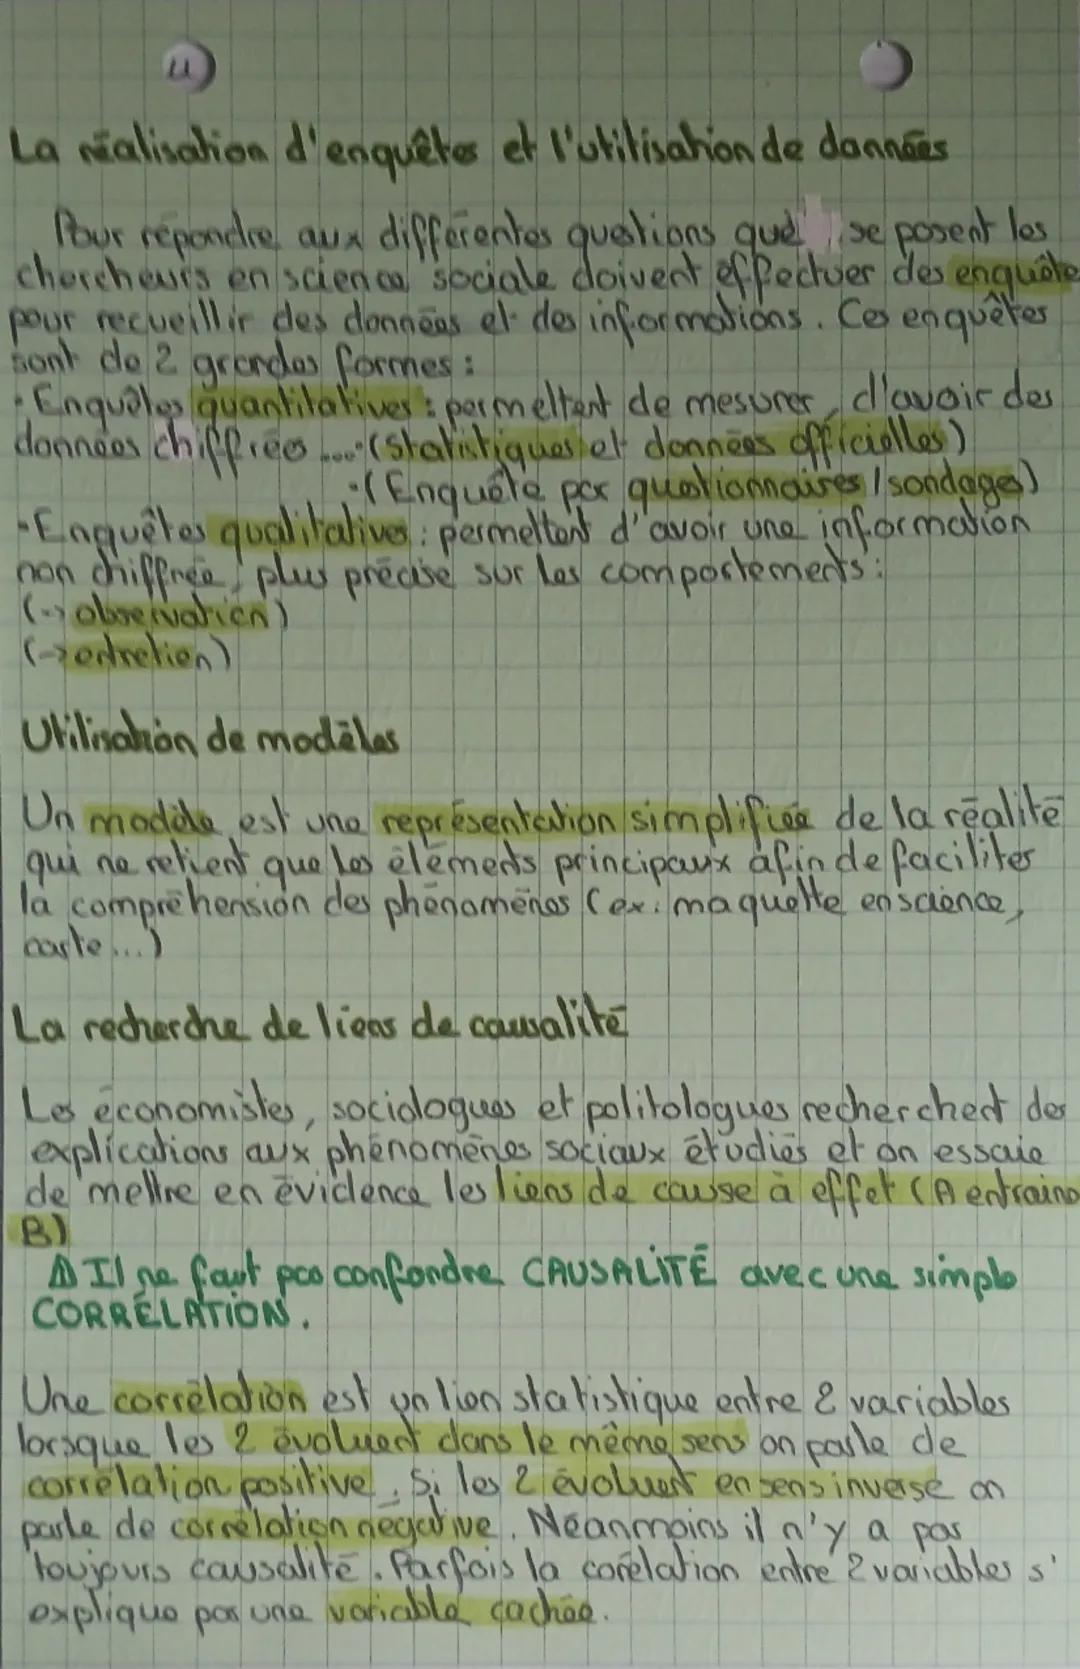 La réalisation d'enquêtes et l'utilisation de données
Pour répondre aux différentes questions que se posent les
chercheurs en science sociale doivent effectuer des enquête
pour recueillir des données et des informations. Ces enquêtes
sont de 2 grandes formes :
· Enquêtes quantitatives : permettent de mesurer, d'avoir des
données chiffrées ... · (Statistiques et données officielles)
· (Enquête par questionnaires / sondages)
· Enquêtes qualitatives : permettent d'avoir une information
non chiffrée, plus précise sur les comportements :
(-> observation)
(-> entretien)
Utilisation de modèles
Un modèle est une représentation simplifiée de la réalité
qui ne retient que les éléments principaux afin de faciliter
la compréhension des phénomènes (ex : maquette en science,
carte ...)
La recherche de liens de causalité
Les économistes, sociologues et politologues recherchent des
explications aux phénomènes sociaux étudiés et on essaie
de mettre en évidence les liens de cause à effet (A entraine
B)
⚠ Il ne faut pas confondre CAUSALITÉ avec une simple
CORRÉLATION.
Une corrélation est un lien statistique entre 2 variables
lorsque les 2 évoluent dans le même sens on parle de
corrélation positive. Si les 2 évoluent en sens inverse on
parle de corrélation négative. Néanmoins il n'y a pas
toujours causalité. Parfois la corélation entre 2 variables s'
explique par une variable cachée.